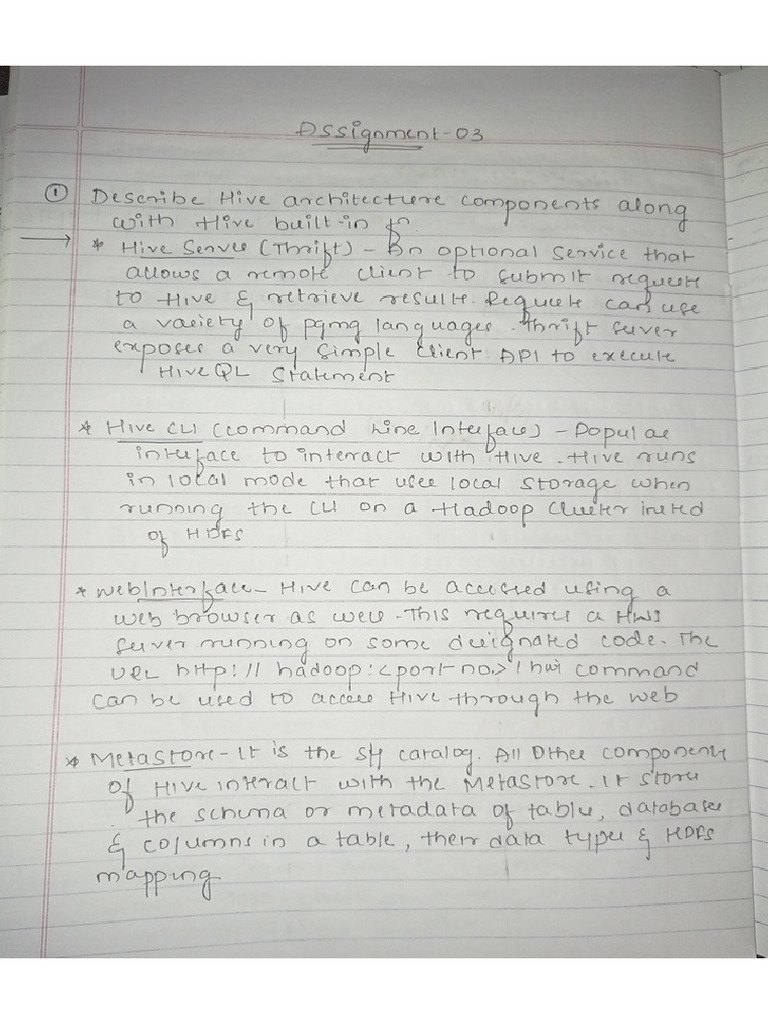 Assignment-03
① Describe Hive architecture components along
with Hive built-in fn.
→ * Hive Server (Thrift) - An optional service that
allows a remote client to submit requests
to Hive & retrieve results. Requests can use
a variety of pgmg languages. Thrift server
exposes a very simple client API to execute
HiveQL Statement
* Hive CLI (Command Line Interface) - Popular
interface to interact with Hive. Hive runs
in local mode that uses local storage when
running the CLI on a Hadoop cluster insted
of HDFS
* Web Interface - Hive can be accessed using a
web browser as well. This requires a HWI
server running on some designated code. The
URL http:// hadoop:<port no.>/hwi command
can be used to access Hive through the web
* Metastore - It is the catalog. All Other components
of Hive interact with the Metastore. It stores
the schema or metadata of tables, databases
& columns in a table, their data types & HDFS
mapping